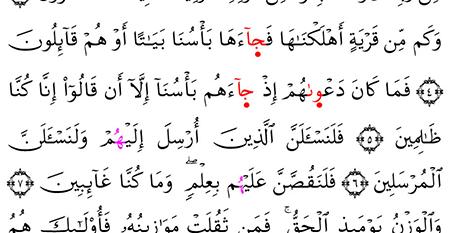 وَكَم مِّن قَرْيَةٍ أَهْلَكْنَـٰهَا فَجَآءَهَا بَأْسُنَا بَيَـٰتًا أَوْ هُمْ قَآئِلُونَ
﴿٤﴾ فَمَا كَانَ دَعْوَىٰهُمْ إِذْ جَآءَهُم بَأْسُنَآ إِلَّآ أَن قَالُوٓا۟ إِنَّا كُنَّا
ظَـٰلِمِينَ ﴿٥﴾ فَلَنَسْـَٔلَنَّ ٱلَّذِينَ أُرْسِلَ إِلَيْهُمْ وَلَنَسْـَٔلَنَّ
ٱلْمُرْسَلِينَ ﴿٦﴾ فَلَنَقُصَّنَّ عَلَيْهُم بِعِلْمٍ ۖ وَمَا كُنَّا غَآئِبِينَ ﴿٧﴾
وَٱلْوَزْنُ يَوْمَئِذٍ ٱلْحَقُّ ۚ فَمَن ثَقُلَتْ مَوَٰزِينُهُۥ فَأُو۟لَـٰٓئِكَ هُمُ